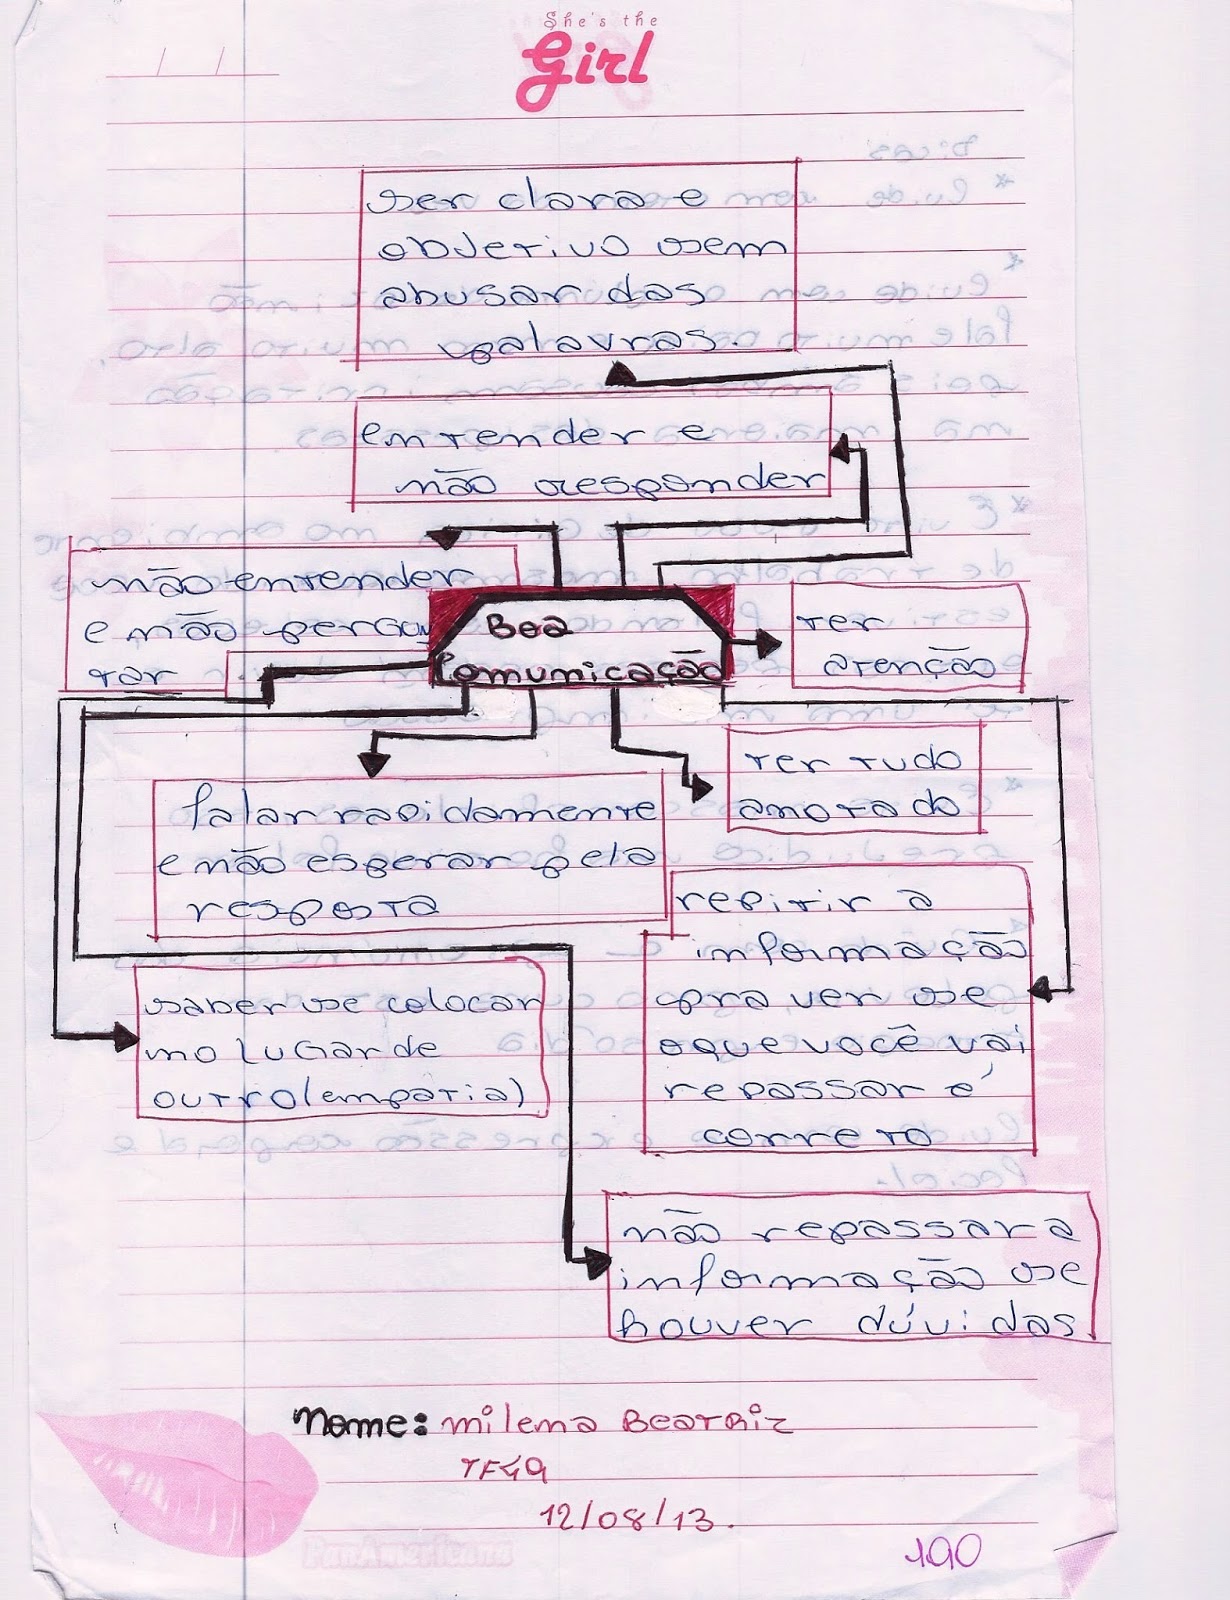 She's the
Girl
ser clara e
objetivo sem
abusar das
palavras.
entender e
não responder
não entender
e não pergun
tar
Boa
Comunicação
ter
atenção
ter tudo
anotado
falar rapidamente
e não esperar pela
resposta
repitir a
informação
pra ver se
o que você vai
repassar é
correto
saber se colocar
no lugar de
outro (empatia)
não repassar a
informação se
houver dúvidas.
Nome: Milena Beatriz
12/08/13.
PanAmericana